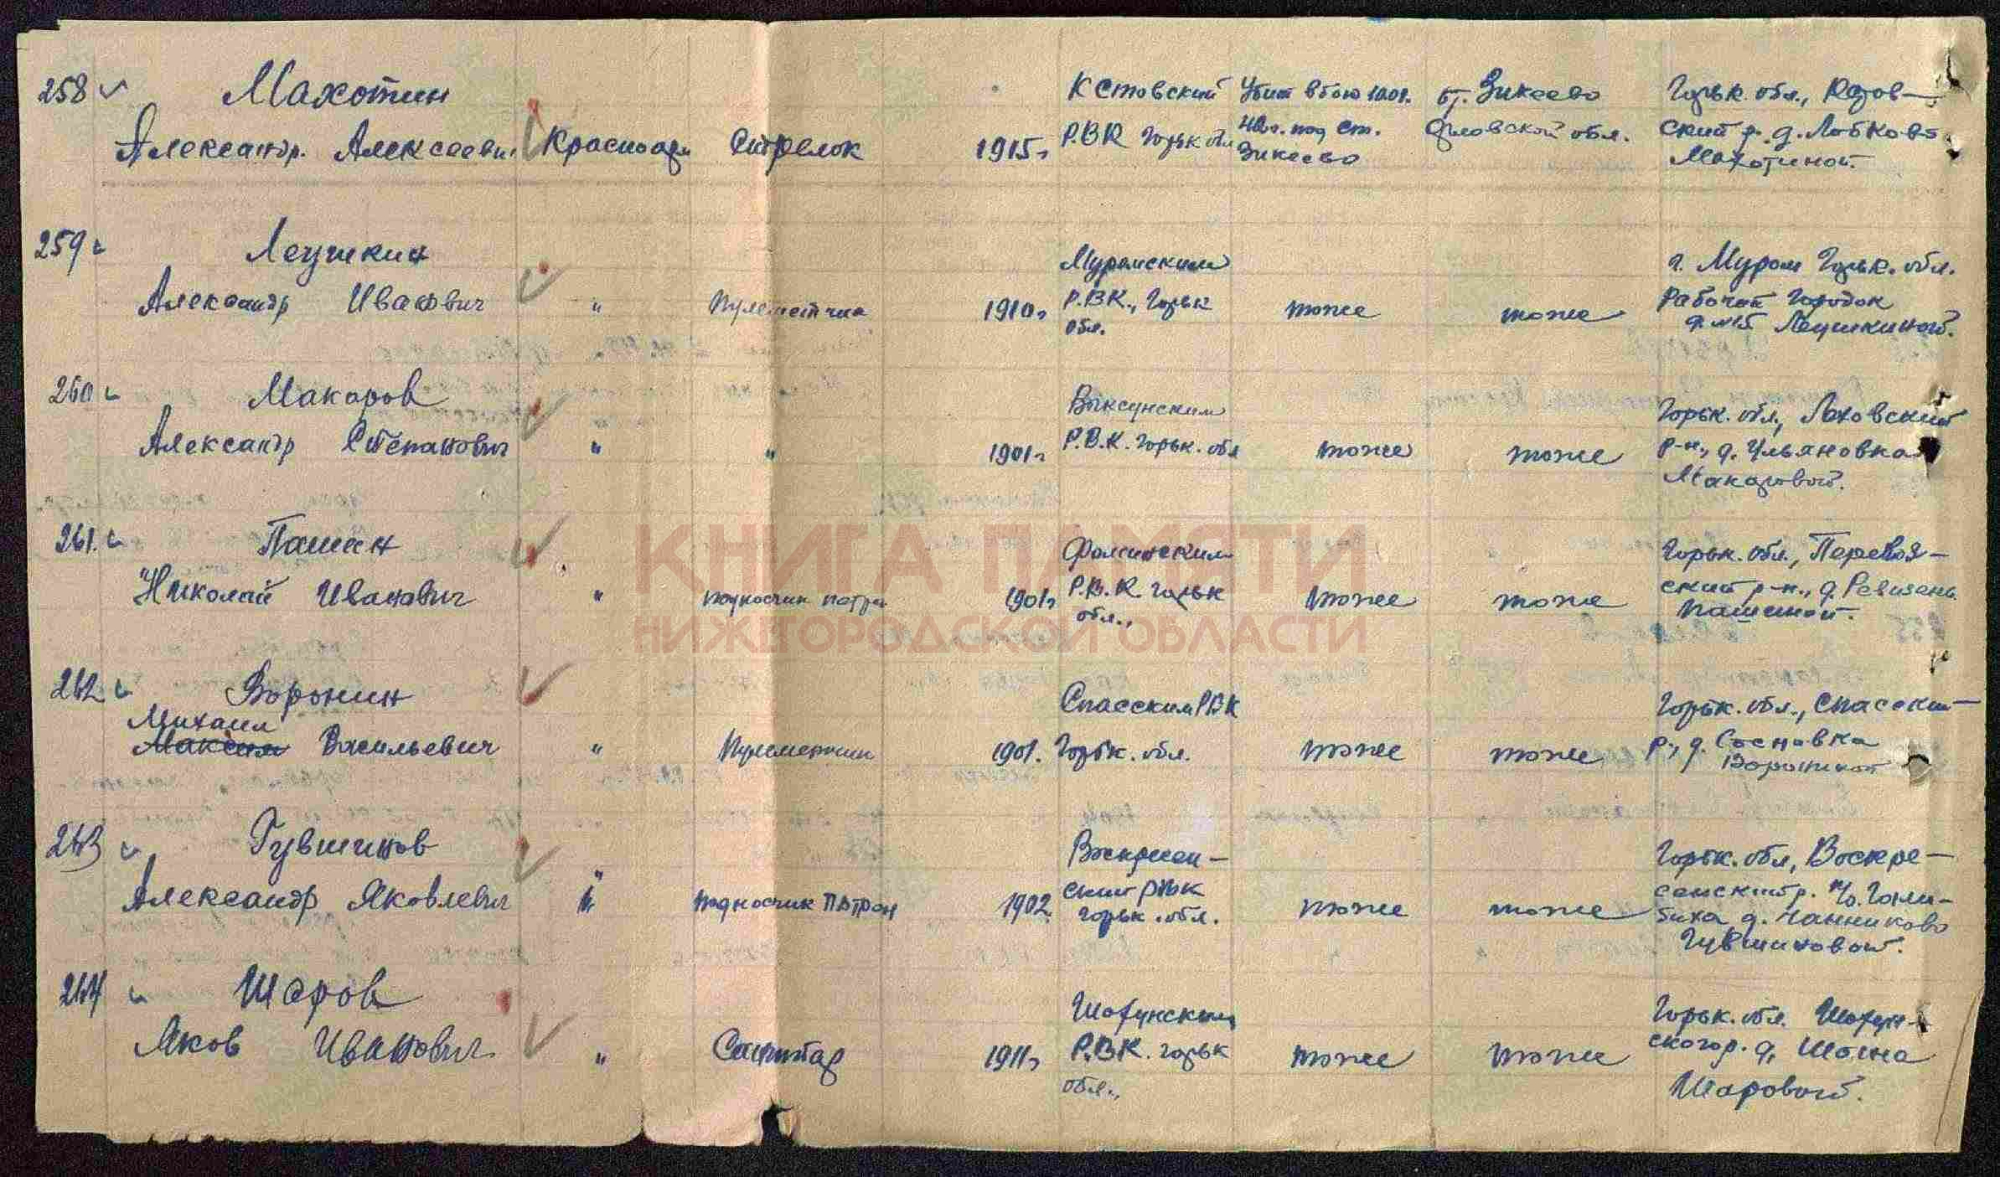 258 Махотин
Александр. Алексеевич Красноарм Стрелок 1915г
Кстовский
Р.В.К Горьк обл
Убит в бою
под ст.
Зикеево
ст. Зикеево
Орловской обл.
Горьк. обл.,
ский р. д. Лобково
Махотиной.
259 Леушкин
Александр Иванович " Пулеметчик 1910г
Муромским
Р.В.К., Горьк
обл.
тоже тоже
г. Муром Горьк. обл.
Рабочий Городок
д. №15 Леушкиной.
260 Макаров
Александр Степанович " " 1901г
Выксунским
Р.В.К. Горьк. обл
тоже тоже
Горьк. обл.,
р-н, д. Ульяновка
Макаровой.
261. Пашин
Николай Иванович " подносчик патрн 1901г
Фоминским
Р.В.К. Горьк
обл.,
тоже тоже
Горьк. обл., Перевоз-
ский р-н., д. Ревизень
Пашиной.
262 Воронин
Михаил
Максим Васильевич " Пулеметчик 1901.
Спасским РВК
Горьк. обл.
тоже тоже
Горьк. обл., Спасский
р., д. Сосновка
Ворониной
263 Гувшинов
Александр Яковлевич " подносчик патрон 1902.
Воскресен-
ский РВК
Горьк. обл.
тоже тоже
Горьк. обл, Воскре-
сенский р.
д. Чанниково
Гувшиновой.
264 Шаров
Яков Иванович " Санитар 1911г
Шатунским
Р.В.К. Горьк
обл.,
тоже тоже
Горьк. обл.
ского р. д,
Шаровой.
КНИГА ПАМЯТИ
НИЖЕГОРОДСКОЙ ОБЛАСТИ